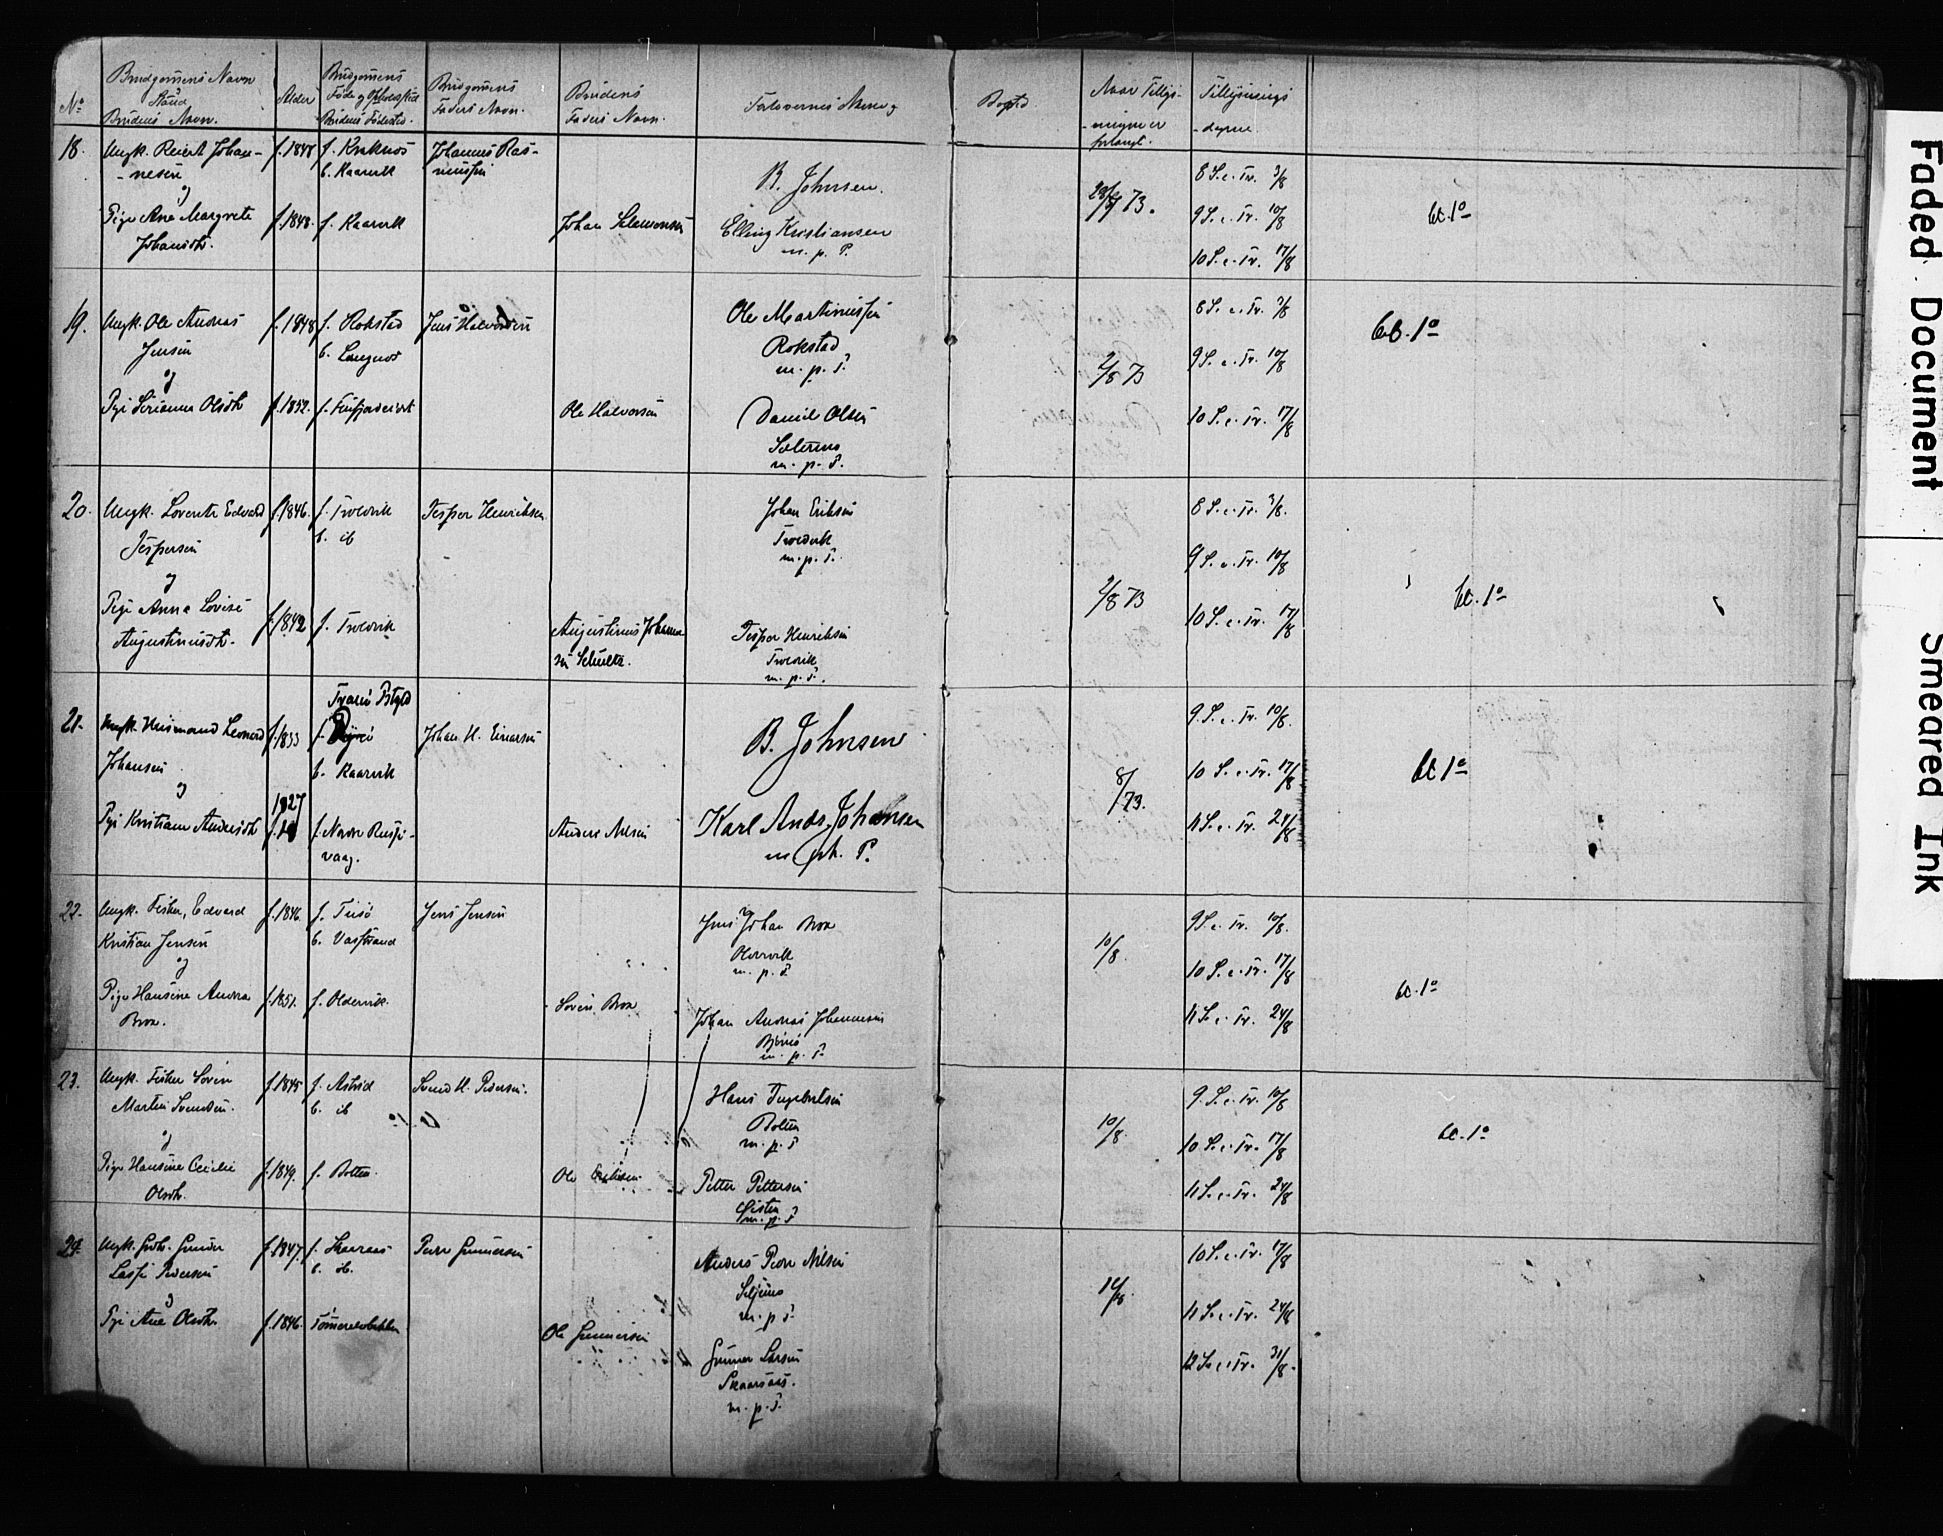 No
Brudgomens Navn
Stand
Brudens Navn.
Alder
Brudgomens
Føde og Opholdssted
Brudens Fødested.
Brudgomens
Faders Navn.
Brudens
Faders Navn.
Forlovernes Navne og
Bopæl
Naar Tillys-
-ningen er
forlangt.
Tillysnings
-dagene.
18. Ungk. Reiert Johan- f. 1848 f. Kraknæs Johannes Ras-
-nesen b. Kaarvik mussen
og B. Johnsen. 8 S. e. Tr. 3/8
Pige Ane Margrete f. 1848. f. Kaarvik Johan Salamonsen Elling Kristiansen 28/7 73. 9 S. e. Tr. 10/8 bt. 1o
Johansdtr. m. p. P. 10 S. e. Tr. 17/8
19. Ungk. Ole Andreas f. 1848 f. Rokstad Jens Halvorsen Ole Martinussen 8 S. e. Tr. 3/8 bt. 1o
Jensen b. Langnes Rokstad
og m. p. P. 2/8 73 9 S. e. Tr. 10/8
Pige Serianna Olsdtr f. 1852. f. Finfjordeidet Ole Halvorsen Daniel Olsen 10 S. e. Tr. 17/8
m. p. P.
20. Ungk. Lorents Edvard f. 1846. f. Trolvik Jesper Henriksen Johan Eriksen 8 S. e. Tr. 3/8.
Jespersen b. ib Trolvik
og m. p. P. 9 S. e. Tr. 10/8
Pige Anna Lovise f. 1842 f. Trolvik Augustinus Johanne- Jesper Henriksen 2/8 73 10 S. e. Tr. 17/8 bt. 1o
Augustinusdtr. sen Schultz. Trolvik
m. p. P.
Tranø Prstgld
21. Ungk. Leonard f. 1833 f. b. Kaarvik Johan H. Einarsen B. Johnsen 9. S. e. Tr. 10/8.
Johansen 10 S. e. Tr. 17/8 bt 1o
og 1827 8/8 73.
Pige Kristiane Andersdtr f. Anders Nilsen Karl Ands. Johansen 11 S. e. Tr. 24/8
vaag. m. ph. P.
22. Ungk. Fisker, Edvard f. 1846. f. Tisø Jens Jensen Jens Johan Brox 9 S. e. Tr. 10/8.
Kristian Jensen b. Vasstrand Oldervik
og m. p. P. 10/8 10 S. e. Tr. 17/8
Pige Hansine Andrea f. 1851. f. Oldervik Søren Brox Johan Andreas Johannesen 11 S. e. Tr. 24/8 bt. 1o
Brox. m. p. P.
23. Ungk. Fisker Søren f. 1845 f. Astrid Svend H. Pedersen. Hans Ingebrigtsen 9. S. e. Tr. 10/8
Martin Svendsen. b. ib Botten
og m. p. P. 10/8. 10 S. e. Tr. 17/8 bt. 1o
Pige Hansine Cecilie f. 1849. f. Botten. Ole Petter Pettersen 11 S. e. Tr. 24/8
Olsdtr. m. p. P
24. Ungk. Gunder f. 1847. f. Skaaraas Peder Gunnersen Anders Peder Nilsen 10 S. e. Tr. 17/8
Pedersen b. ib.
og m. p. P. 11 S. e. Tr. 24/8
Pige Ane Olsdtr. f. 1846. Ole Gunnersen Gunner Larsen 12 S. e. Tr. 31/8.
Skaaraas.
m. p. P.
Faded Document
Smeared Ink